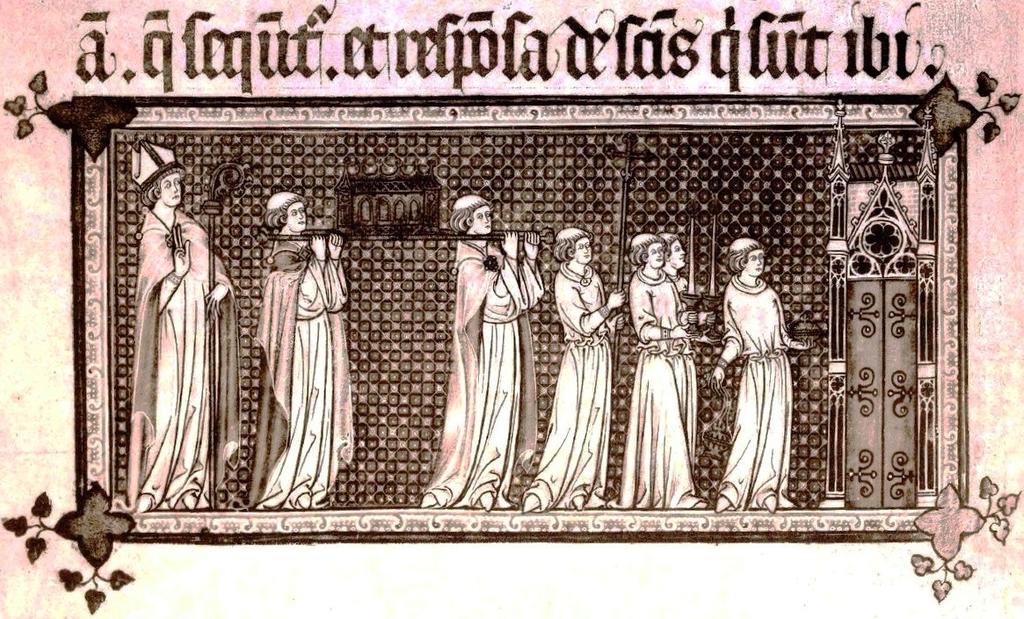 ā. q̄ seqūt᷑. et respōsa de scīs q̄ sūt ibi.